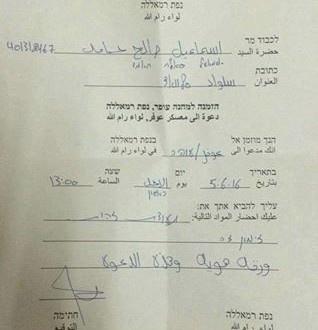 נפת רמאללה
لواء رام الله
לכבוד מר
حضرة السيد
اسماعيل صالح حامد
כתובת
العنوان سلواد
הזמנה למחנה עופר, נפת רמאללה
دعوة الى معسكر عوفر، لواء رام الله
הנך מוזמן אל בנפת רמאללה
انك مدعوا الى في لواء رام الله
בתאריך יום שעה
بتاريخ 5.6.16 يوم الاحد الساعة 13:00
עליך להביא אתך את:
عليك احضار المواد التالية:
ورقة هوية وهذا الدعوة
נפת רמאללה חתימה
لواء رام الله التوقيع